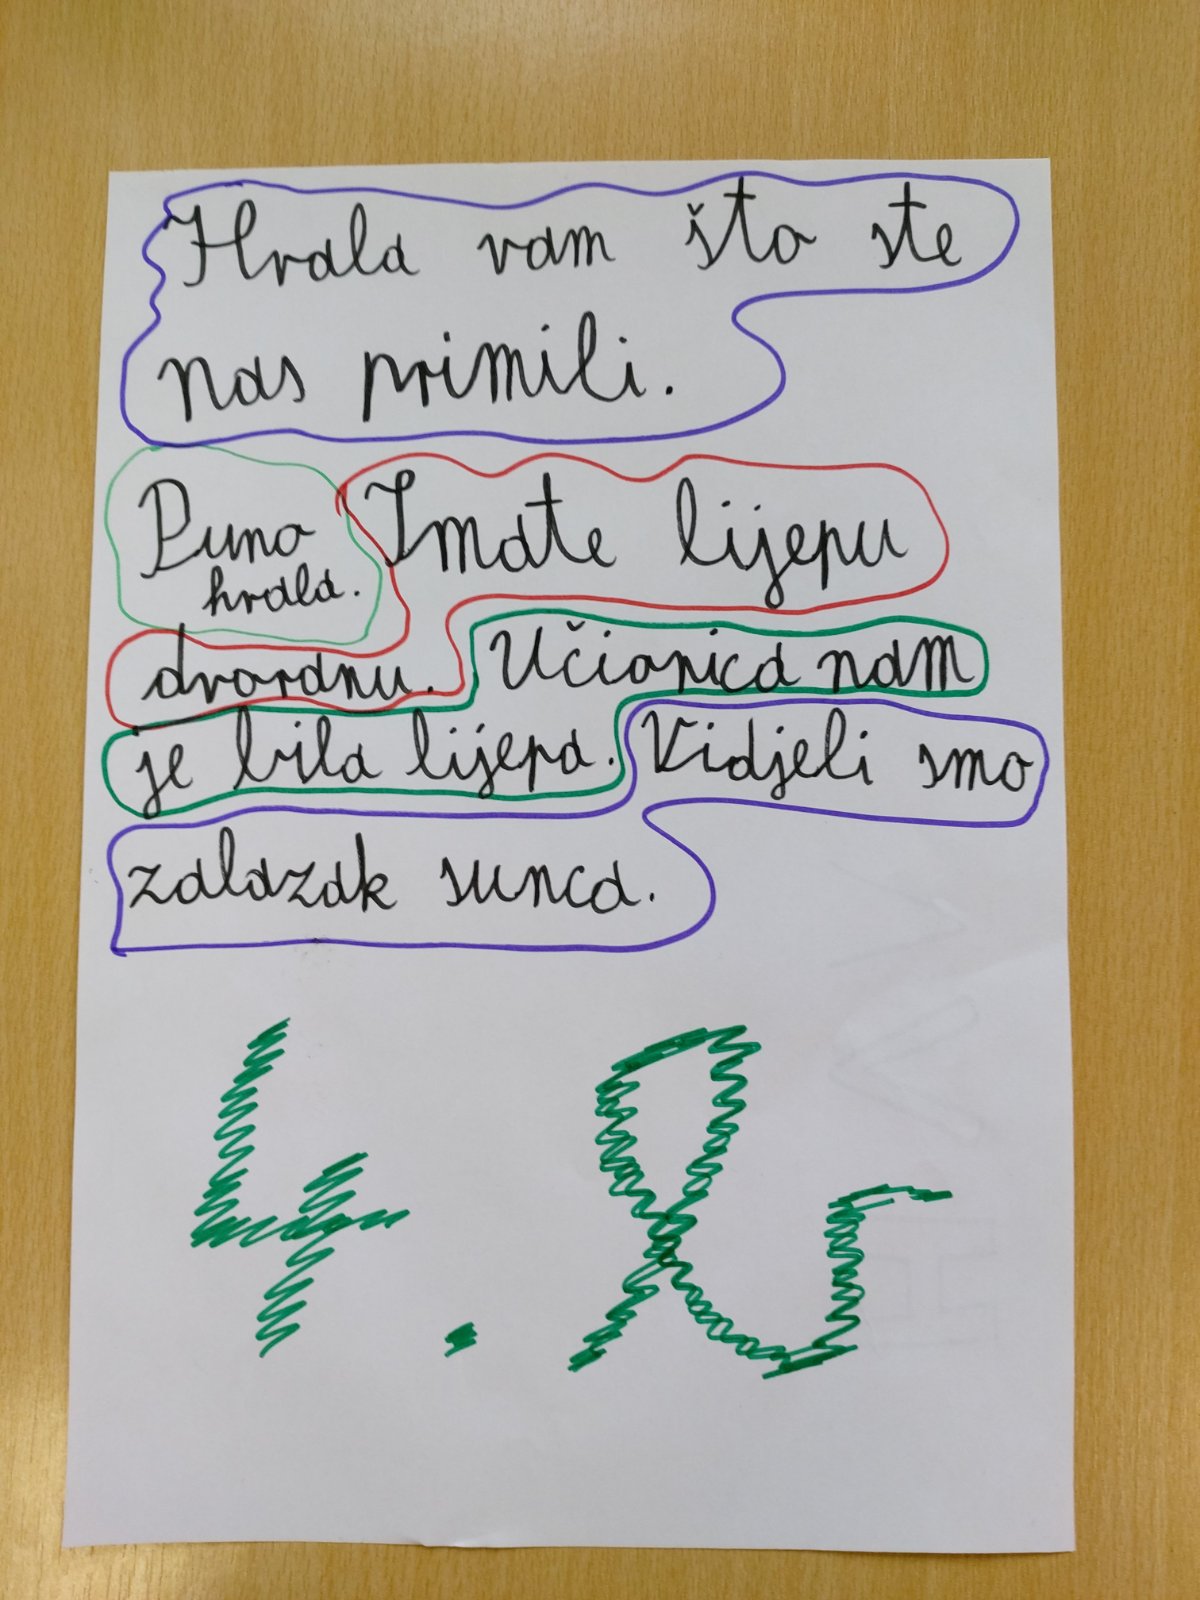 Hvala vam što ste
nas primili.
Puno
hvala.
Imate lijepu
dvoranu.
Učionica nam
je bila lijepa.
Vidjeli smo
zalazak sunca.
4. b